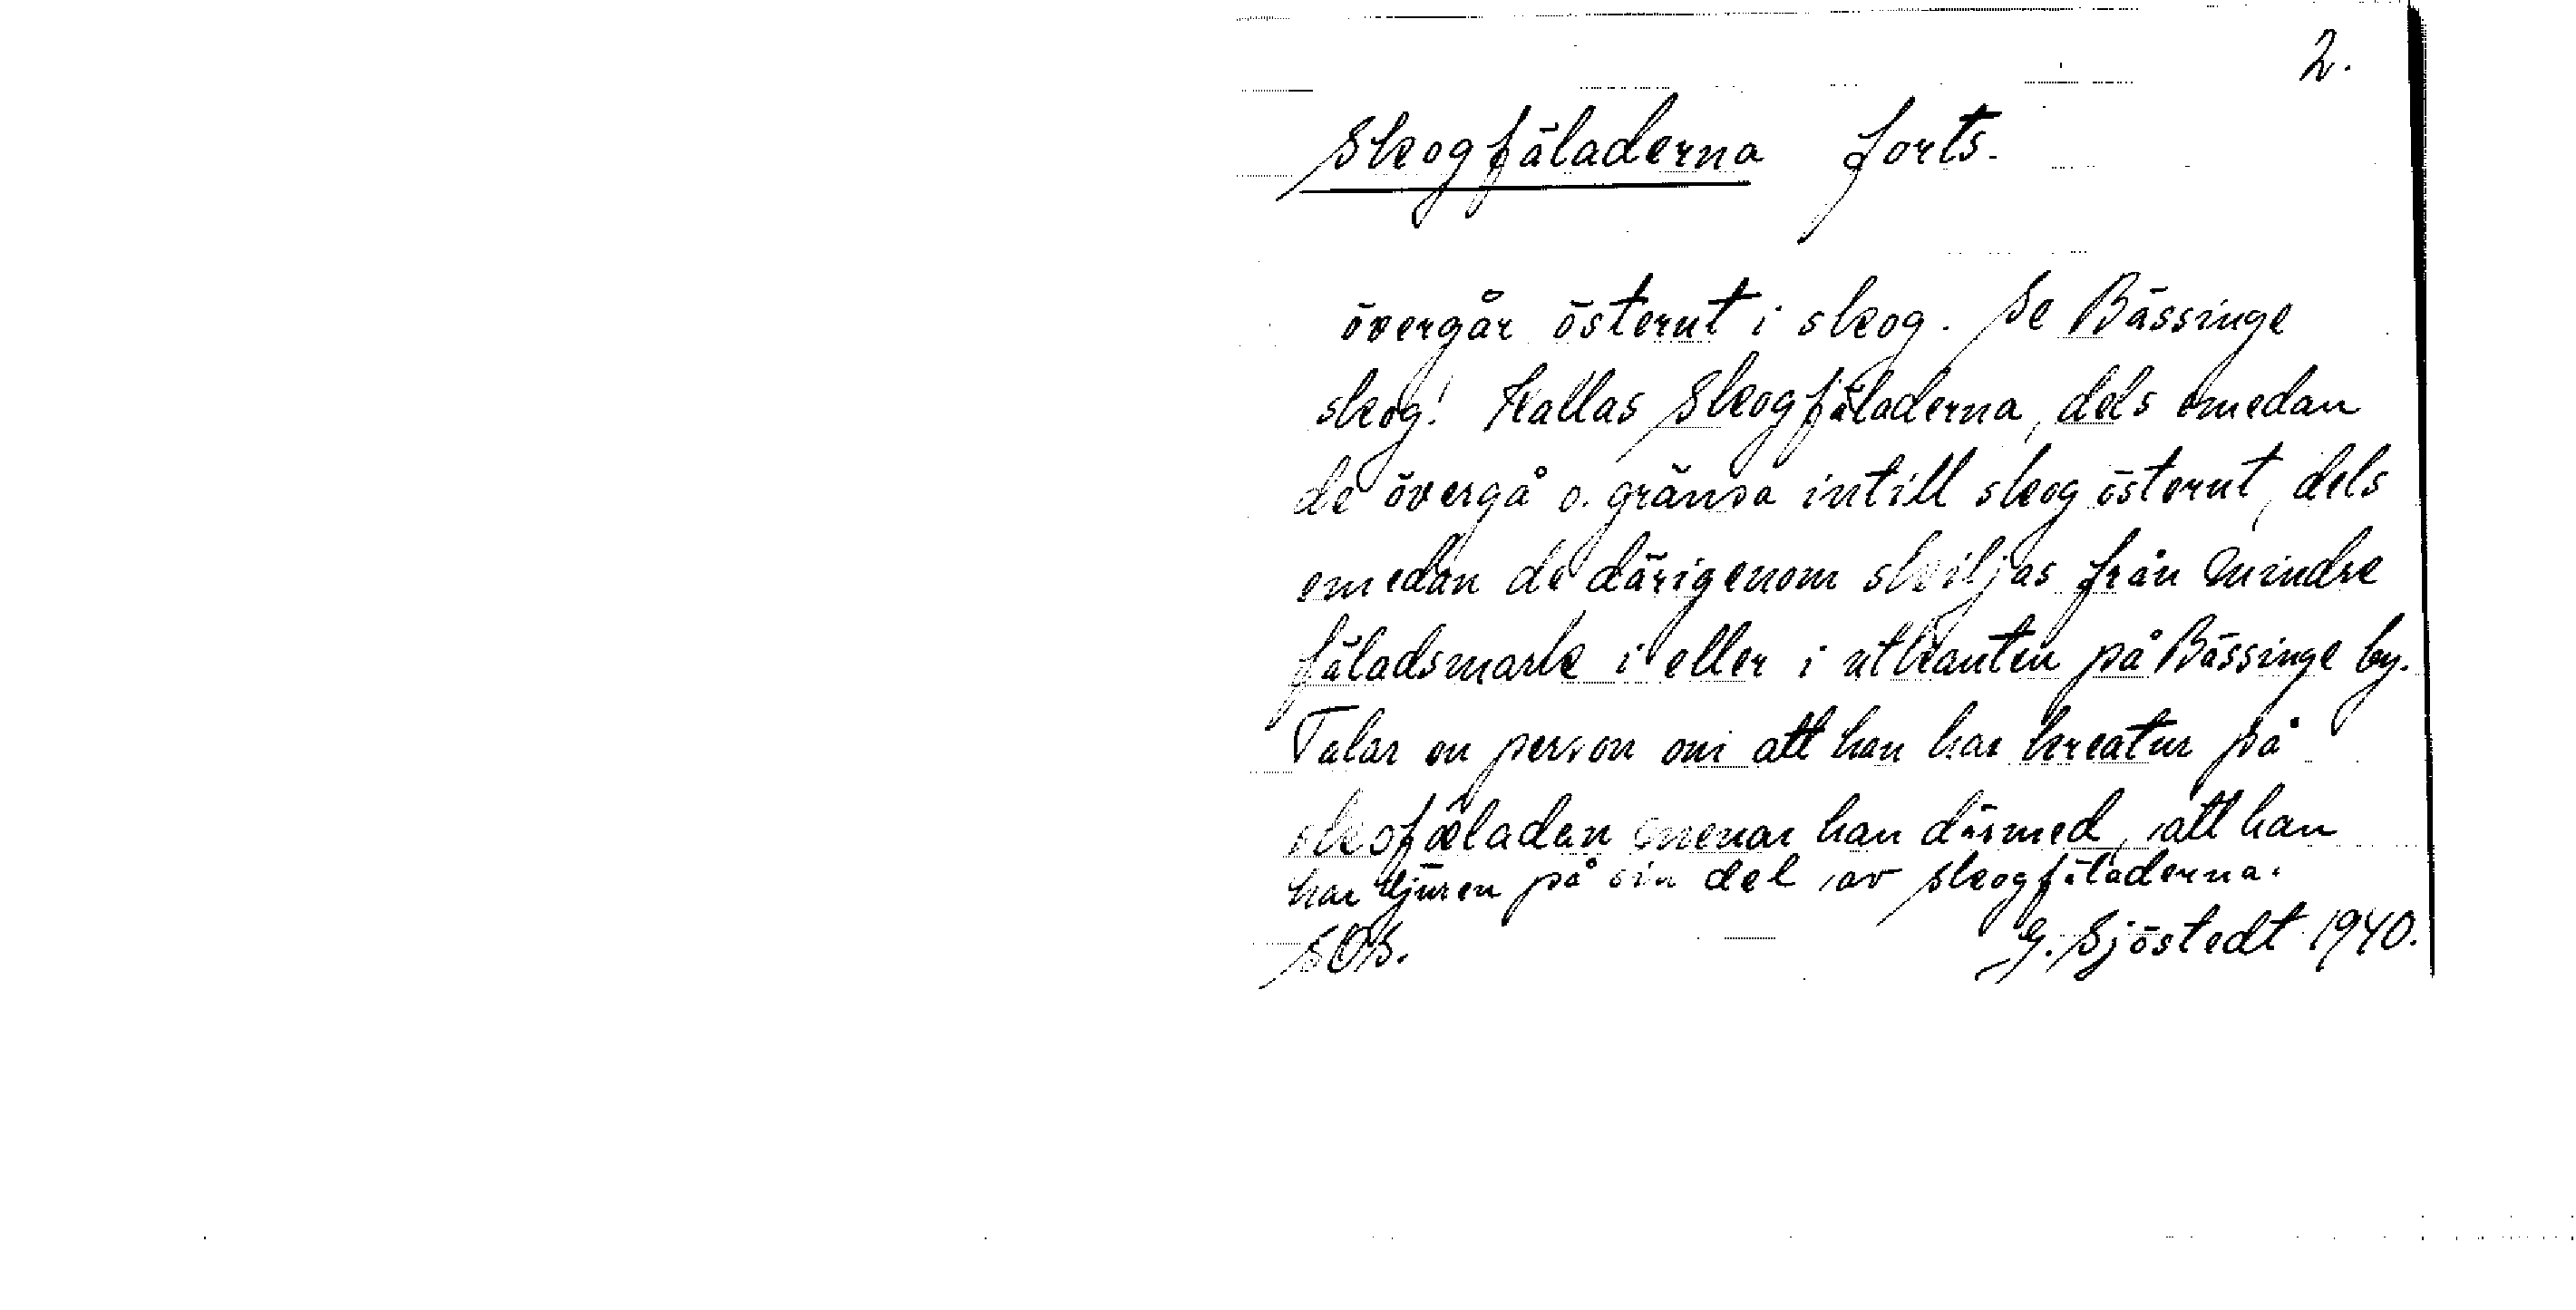 2.
Skogfäladerna forts.
övergår österut i skog. Se Bässinge
skog! Kallas Skogfäladerna, dels emedan
de övergå o. gränsa intill skog österut, dels
emedan de därigenom skiljas från mindre
fäladsmark i eller i utkanten på Bässinge by.
Talar en person om att han har kreatur på
skofæladen menar han därmed, att han
har djuren på sin del av skogfäladerna.
SOS. G. Sjöstedt 1940.